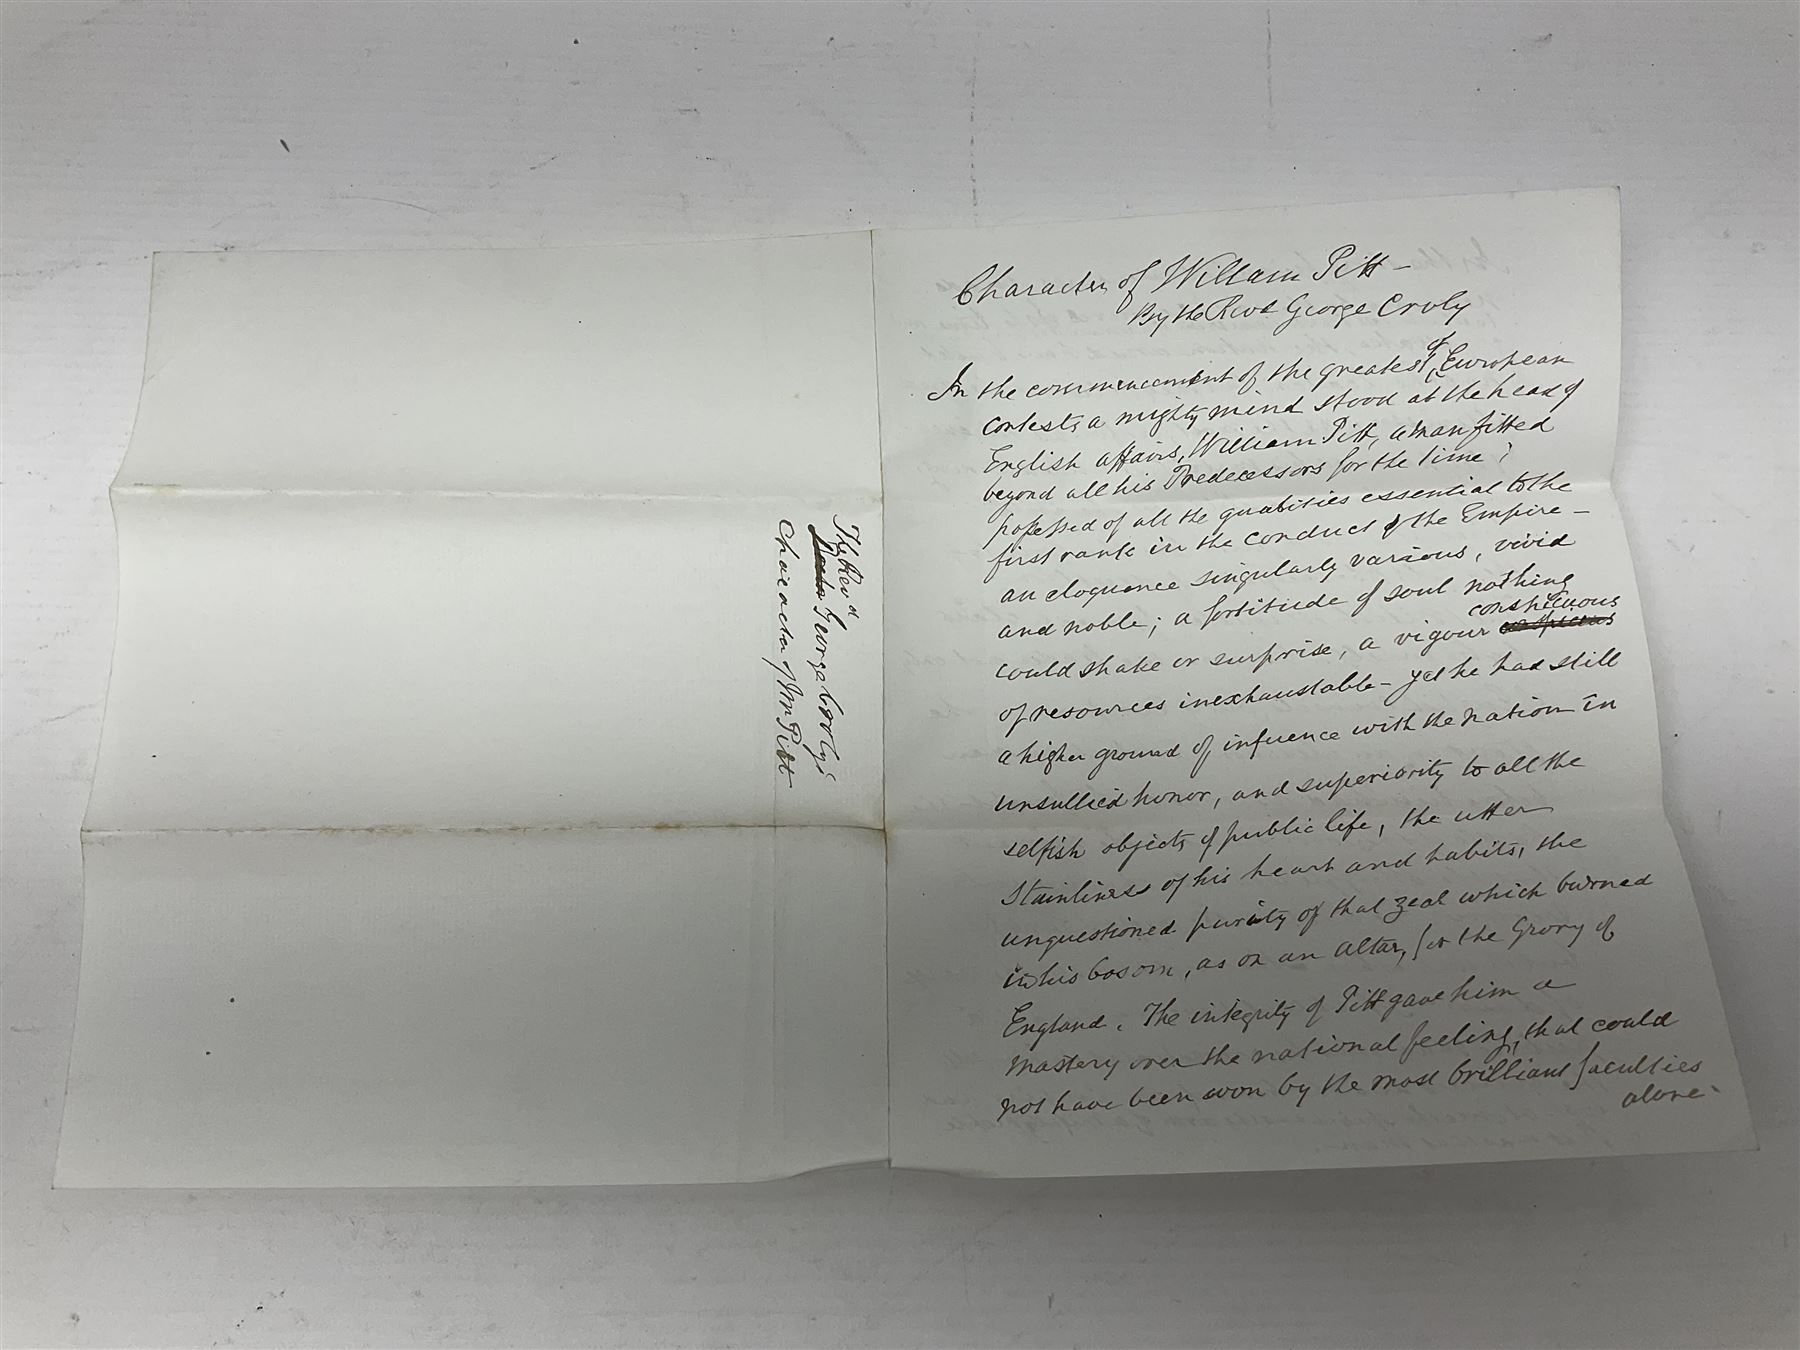 The Revd
George Croly's
Character of Mr Pitt
Character of William Pitt —
By the Revd George Croly
In the commencement of the greatest of European
contests, a mighty mind stood at the head of
English affairs, William Pitt, a man fitted
beyond all his Predecessors for the time;
possessed of all the qualities essential to the
first rank in the conduct of the Empire —
an eloquence singularly various, vivid
and noble; a fortitude of soul nothing
could shake or surprise, a vigour conspicuous
of resources inexhaustable — yet he had still
a higher ground of infuence with the nation in
unsullied honor, and superiority to all the
selfish objects of public life, the utter
stainliness of his heart and habits, the
unquestioned purity of that zeal which burned
in his bosom, as on an altar, for the Glory of
England. The integrity of Pitt gave him a
mastery over the national feeling, that could
not have been won by the most brilliant faculties
alone.